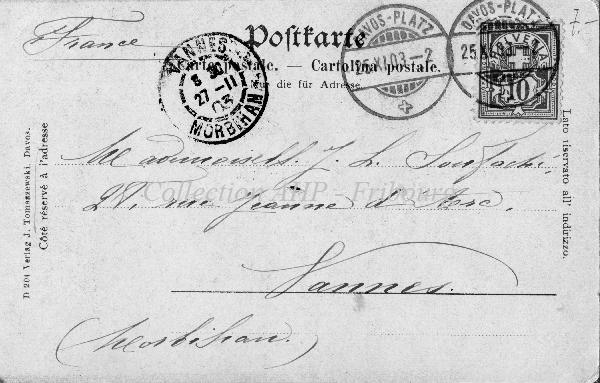 France
Postkarte
Carte postale. — Cartolina postale.
Nur die für Adresse.
VANNES
8 30
27 -11
03
MORBIHAN
DAVOS-PLATZ
25.XI.03-7
DAVOS-PLATZ
25.XI.
HELVETIA
10
7.-
Mademoiselle J. L.
28, rue Jeanne d'Arc,
Vannes.
(Morbihan)
Collection JHP - Fribourg
Côté réservé à l'adresse
D 204 Verlag J. Tomaszewski, Davos.
Lato riservato all' indirizzo.